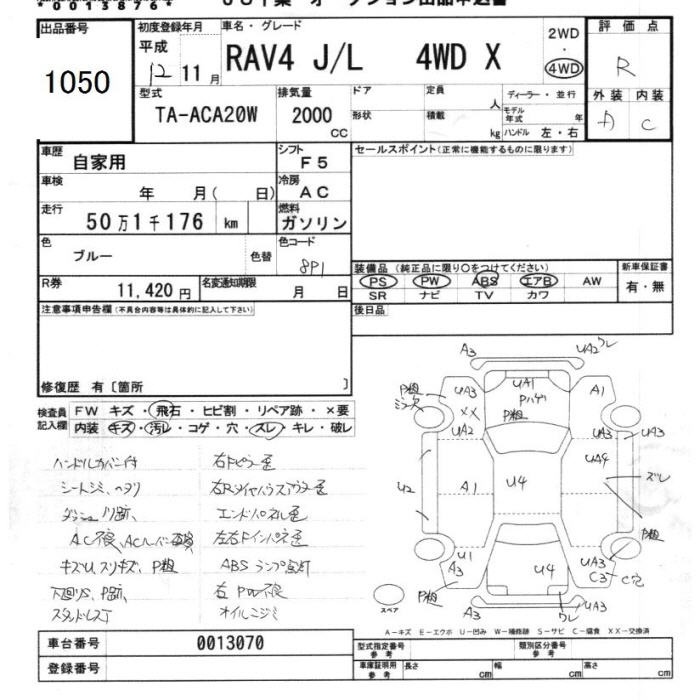 00138764
出品番号
1050
初度登録年月
平成
12 11 月
車名・グレード
RAV4 J/L 4WD X
2WD
・
4WD
評価点
R
外装 内装
A C
型式
TA-ACA20W
排気量
2000
CC
ドア
定員
人
形状
積載
kg
ディーラー・並行
モデル年式
年
ハンドル 左・右
車歴
自家用
シフト
F5
セールスポイント(正常に機能するものに限ります)
車検
年 月( 日)
冷房
AC
走行
50万1千176 km
燃料
ガソリン
色
ブルー
色替
色コード
8P1
装備品 (純正品に限り○をつけてください)
PS PW ABS エアB AW
SR ナビ TV カワ
新車保証書
有・無
R券
11,420 円
名変通知期限
月 日
注意事項申告欄 (不具合内容等は具体的に記入して下さい)
後日品
修復歴 有〔箇所 〕
検査員記入欄
FW キズ・飛石・ヒビ割・リペア跡・×要
内装 キズ・汚レ・コゲ・穴・スレ・キレ・破レ
ハンドルカバー付
シートシミ、ヘタリ
ダッシュノリ跡、
AC不良、
キズU、スリキズ、P粗
下回りS、P跡、
スタッドレスT
右Fピラー歪
エンドパネル歪
左右Fインパネ歪
ABSランプ点灯
右PW不良
オイルニジミ
A3
UA2 ワレ
P粗
UA3
UA1
A1
XX
P粗
UA2
UA3
UA3
UA4
U2
A1
U4
スレ
P粗
U1
A3
U4
UA3
C3
C穴
P粗
A3
ワレ
UA3
スペア
A-キズ E-エクボ U-凹み W-補修跡 S-サビ C-腐食 XX-交換済
車台番号
0013070
型式指定番号
参考
類別区分番号
参考
登録番号
車庫証明用
参考
長さ
cm
幅
cm
高さ
cm